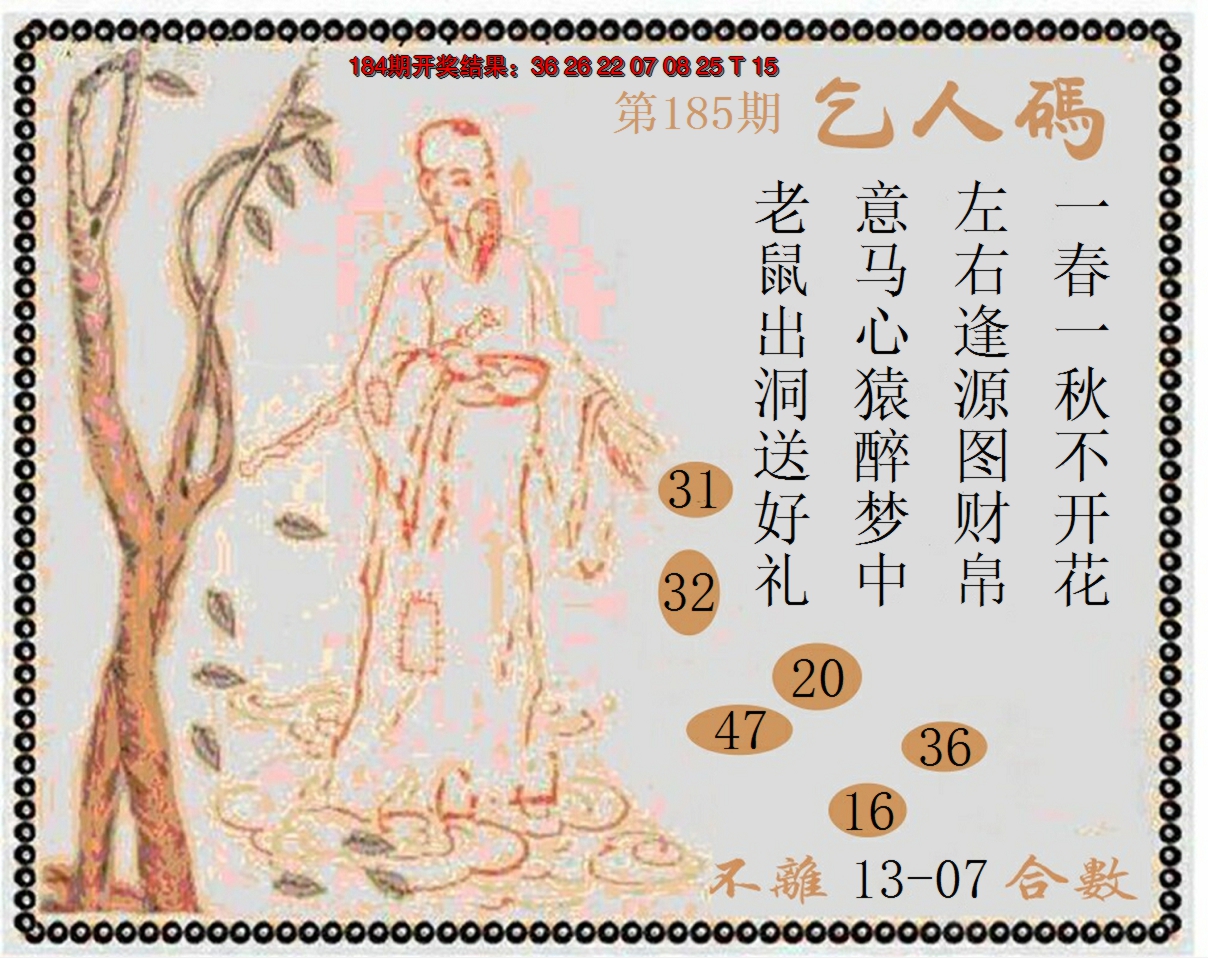 184期开奖结果：36 26 22 07 08 25 T 15
第185期 乞人碼
一春一秋不开花
左右逢源图财帛
意马心猿醉梦中
老鼠出洞送好礼
31
32
20
47
36
16
不離 13-07 合數